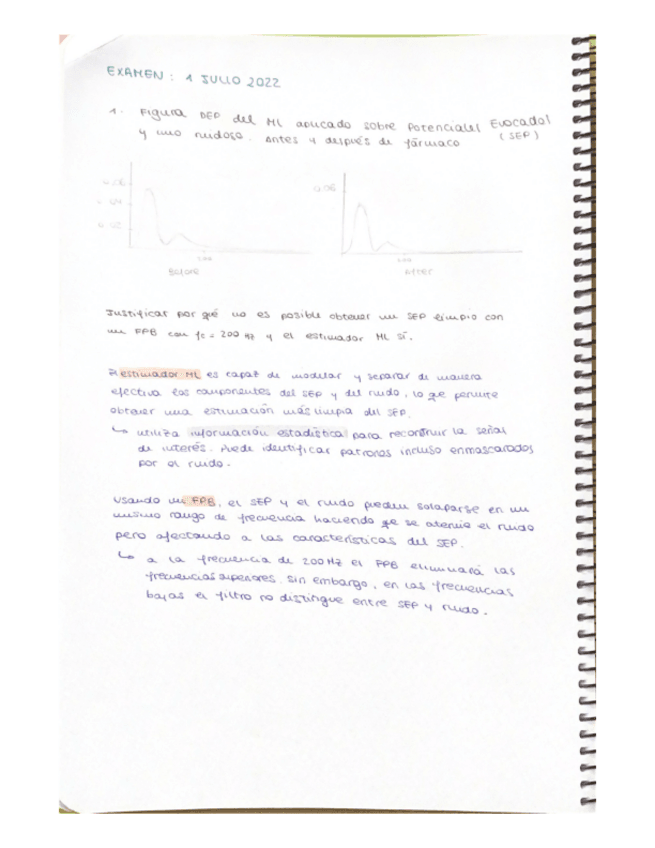 EXAMEN : 1 JULIO 2022
1. Figura DEP del ML aplicado sobre Potenciales Evocados
y uno ruidoso. Antes y después de fármaco (SEP)
0.06
0.04
0.02
100
Before
0.06
100
After
Justificar por qué no es posible obtener un SEP limpio con
un FPB con fc = 200 Hz y el estimador ML sí.
El estimador ML es capaz de modelar y separar de manera
efectiva los componentes del SEP y del ruido, lo qe permite
obtener una estimación más limpia del SEP.
↳ utiliza información estadística para reconstruir la señal
de interés. Puede identificar patrones incluso enmascarados
por el ruido.
Usando un FPB, el SEP y el ruido pueden solaparse en un
mismo rango de frecuencia haciendo qe se atenúe el ruido
pero afectando a las características del SEP.
↳ a la frecuencia de 200 Hz el FPB eliminará las
frecuencias superiores. Sin embargo, en las frecuencias
bajas el filtro no distingue entre SEP y ruido.